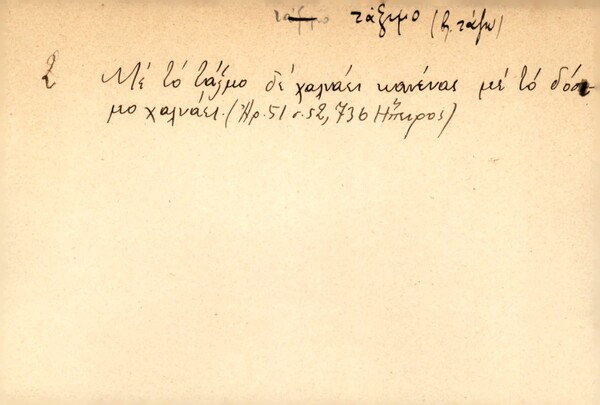 τάξιμο (β. τάζω)
2 Μέ τό τάξιμο δέ χαλνάει κανένας μέ τό δόσι-
μο χαλνάει. (Ἀρ. 51 σ. 52, 736 Ἤπειρος)